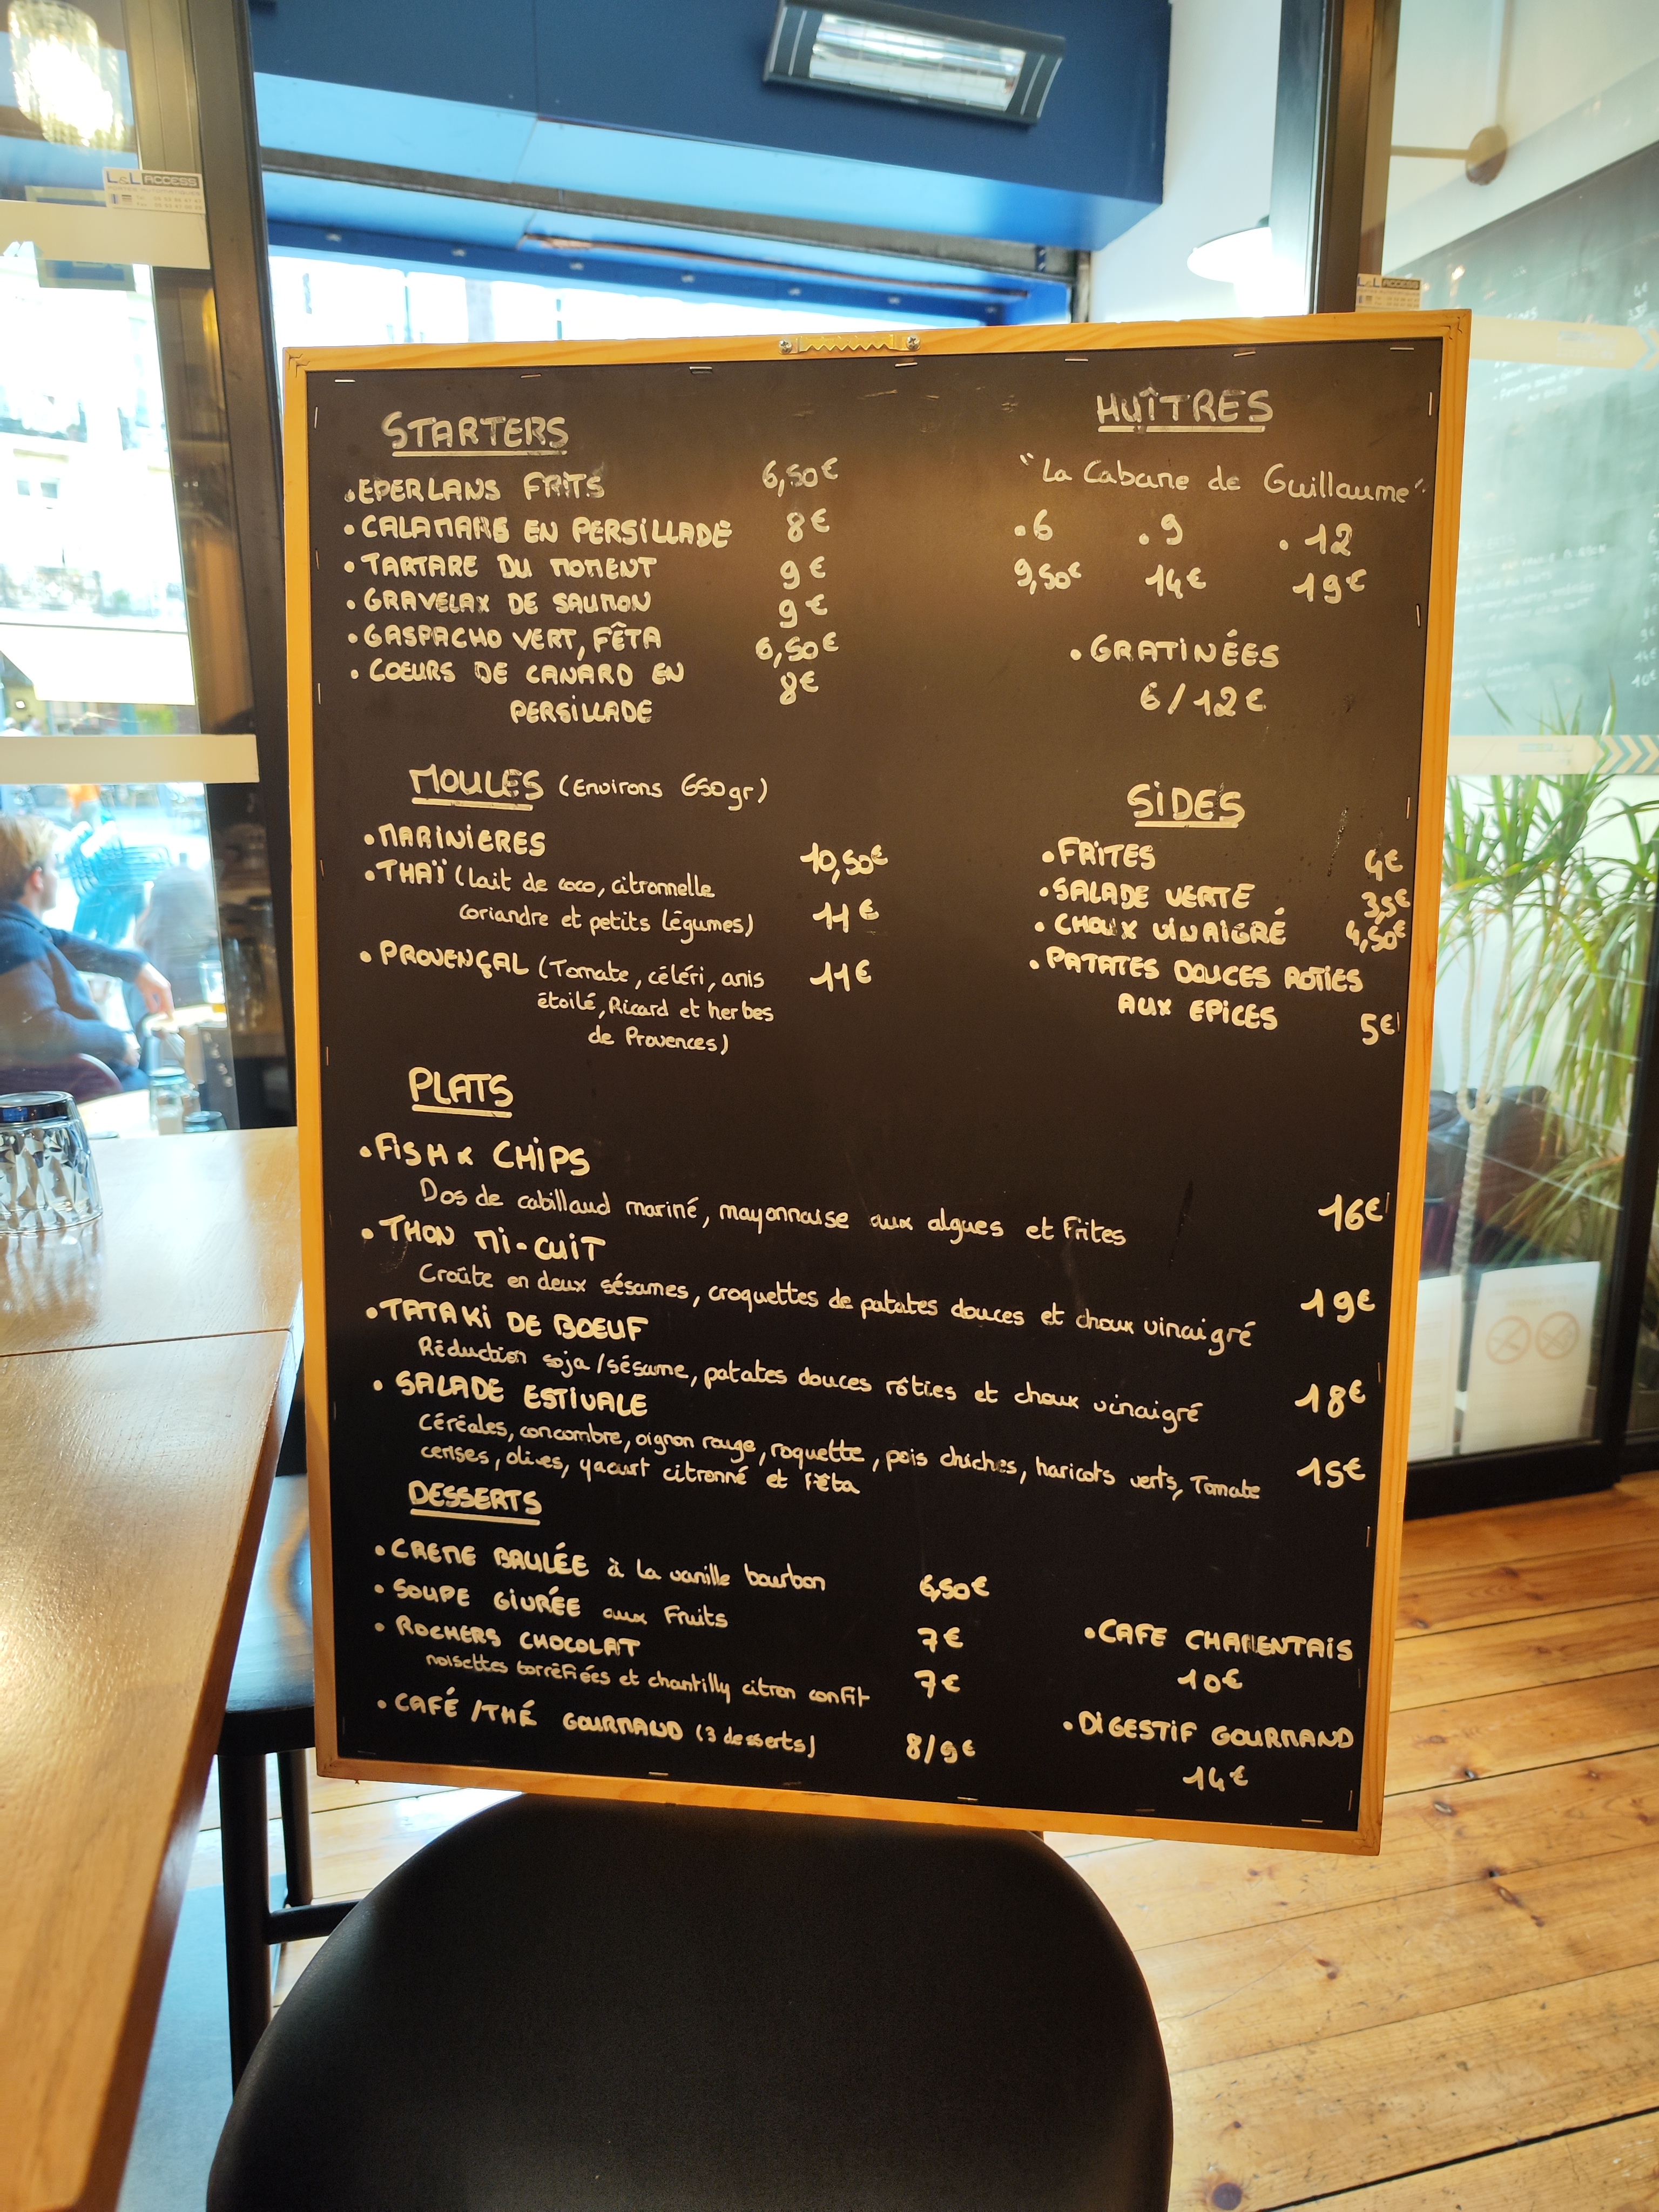 L&L ACCESS
L&L ACCESS
STARTERS
• EPERLANS FRITS 6,50€
• CALAMARS EN PERSILLADE 8€
• TARTARE DU MOMENT 9€
• GRAVELAX DE SAUMON 9€
• GASPACHO VERT, FÊTA 6,50€
• COEURS DE CANARD EN 8€
PERSILLADE
HUÎTRES
"La Cabane de Guillaume"
• 6 • 9 • 12
9,50€ 14€ 19€
• GRATINÉES
6/12€
MOULES (Environs 650gr)
• MARINIERES 10,50€
• THAÏ (lait de coco, citronnelle
coriandre et petits légumes) 11€
• PROVENÇAL (Tomate, céléri, anis 11€
étoilé, Ricard et herbes
de Provences)
SIDES
• FRITES 4€
• SALADE VERTE 3,5€
• CHOUX VINAIGRÉ 4,50€
• PATATES DOUCES ROTIES
AUX EPICES 5€
PLATS
• FISH & CHIPS
Dos de cabillaud mariné, mayonnaise aux algues et Frites 16€
• THON MI-CUIT
Croûte en deux sésames, croquettes de patates douces et choux vinaigré 19€
• TATAKI DE BOEUF
Réduction soja/sésame, patates douces rôties et choux vinaigré 18€
• SALADE ESTIVALE
Céréales, concombre, oignon rouge, roquette, pois chiches, haricots verts, Tomate 15€
cerises, olives, yaourt citronné et Fêta
DESSERTS
• CREME BRULÉE à la vanille bourbon 6,50€
• SOUPE GIVRÉE aux Fruits 7€
• ROCHERS CHOCOLAT
noisettes torréfiées et chantilly citron confit 7€
• CAFÉ/THÉ GOURMAND (3 desserts) 8/9€
• CAFE CHARENTAIS
10€
• DIGESTIF GOURMAND
14€